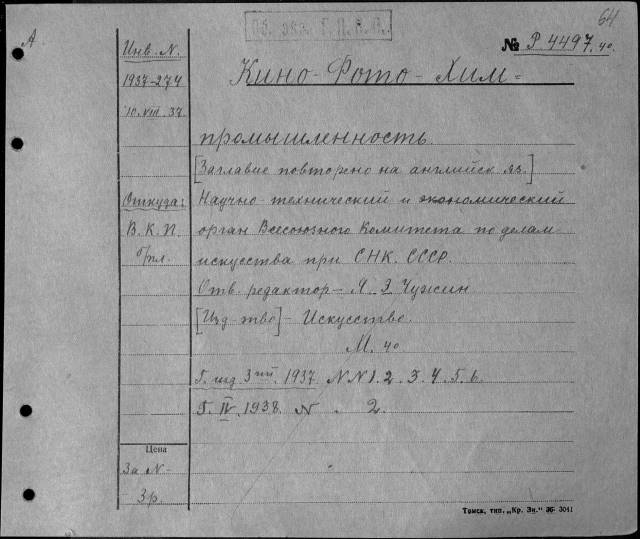 64
Об. экз. Г.П.Б.
А
№ Р 4497. 40.
Инв. N.
1937-274
10.VIII.37
Кино-Фото-Хим=
промышленность.
[Заглавие повторено на английск яз.]
Откуда:
В.К.П.
Научно-технический и экономический
орган Всесоюзного Комитета по делам
искусства при СНК. СССР.
Отв. редактор - Я. Э Чужин
[Изд-тво] - Искусство.
М. 40
Г. изд 3ий. 1937 NN 1. 2. 3. 4. 5. 6.
Г. IV. 1938. N . 2.
Цена
За N-
3р.
Томск, тип. „Кр. Зн." 36 3041